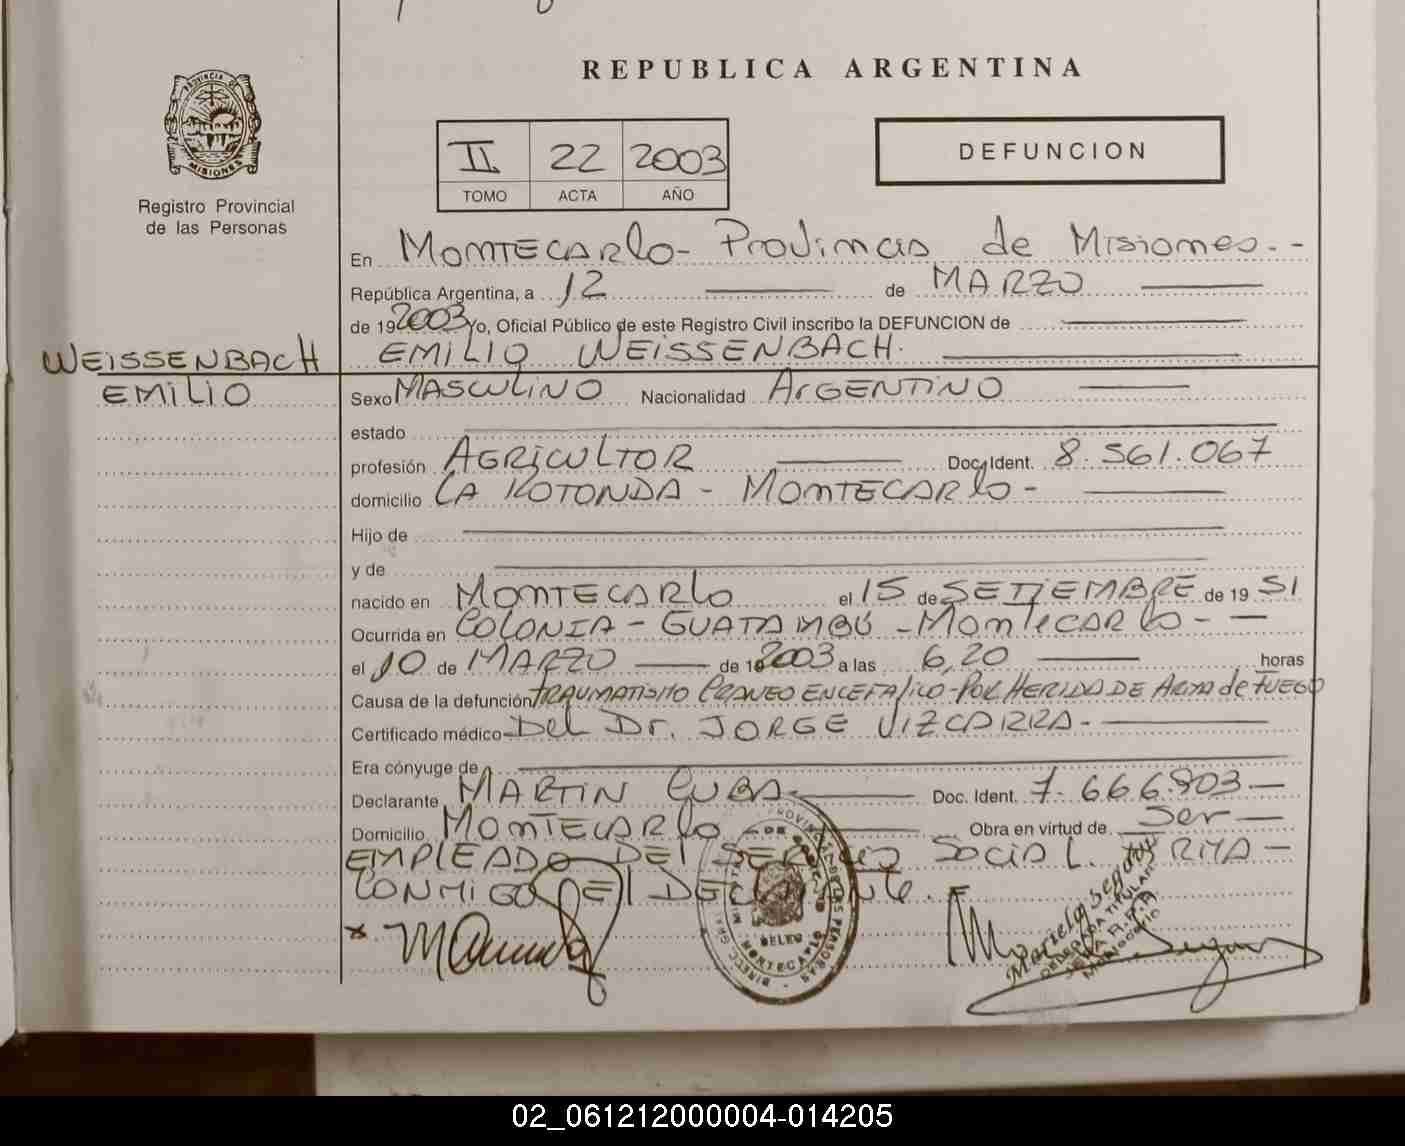 REPUBLICA ARGENTINA
PROVINCIA DE
MISIONES
Registro Provincial
de las Personas
II 22 2003
TOMO ACTA AÑO
DEFUNCION
En MONTECARlo - Provincias de Misiones. - -
República Argentina, a 12 de MARZO
de 19 2003 Yo, Oficial Público de este Registro Civil inscribo la DEFUNCION de
EMILIO WEISSENBACH.
WEISSENBACH
EMILIO
Sexo MASCULINO Nacionalidad ARGENTINO
estado
profesión AGRICULTOR Doc. Ident. 8.561.067
domicilio LA ROTONDA - MONTECARlo -
Hijo de
y de
nacido en MONTECARlo el 15 de SETIEMBRE de 19 51
Ocurrida en COLONIA - GUATAMBÚ - MONTECARLO - -
el 10 de MARZO de 2003 a las 6,20 horas
Causa de la defunción TRAUMATISMO CRANEO ENCEFALICO - POR HERIDA DE ARMA de FUEGO
Certificado médico Del Dr. JORGE VIZCARRA -
Era cónyuge de
Declarante MARTIN CUBA - Doc. Ident. 7.666.803 -
Domicilio MONTECARlo - Obra en virtud de Ser -
EMPLEADO DEl SERVICIO SOCIAL. FIRMA -
CONMIGO El DECLARANTE.
MONTECARLO
Mariela Segovia
DELEGADA TITULAR
02_061212000004-014205